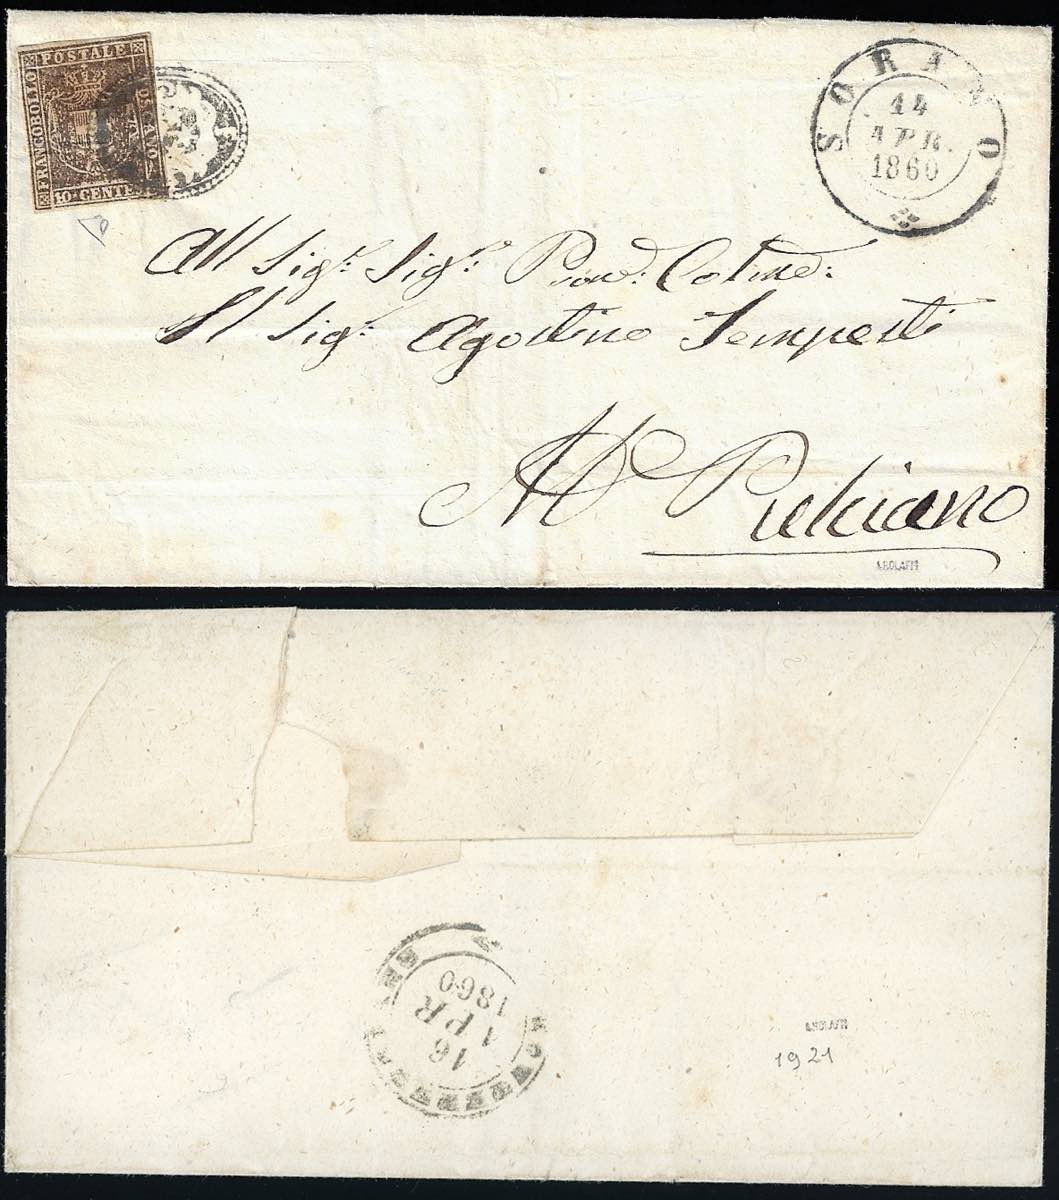 FRANCOBOLLO POSTALE TOSCANO
10 CENT
SORANO
14
APR.
1860
All Sigr. Sigr. Pron. Colmo:
Al Sigr. Agostino Tempesti
M. Pulciano
A.BOLAFFI
16
APR
1860
A.BOLAFFI
1921